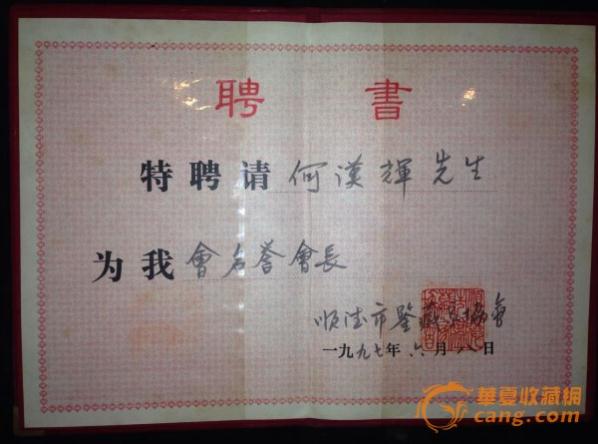 聘書
特聘请何漢輝先生
为我會名誉會長
顺德市鉴藏家協會
一九九七年六月八日
華夏收藏網
cang.com